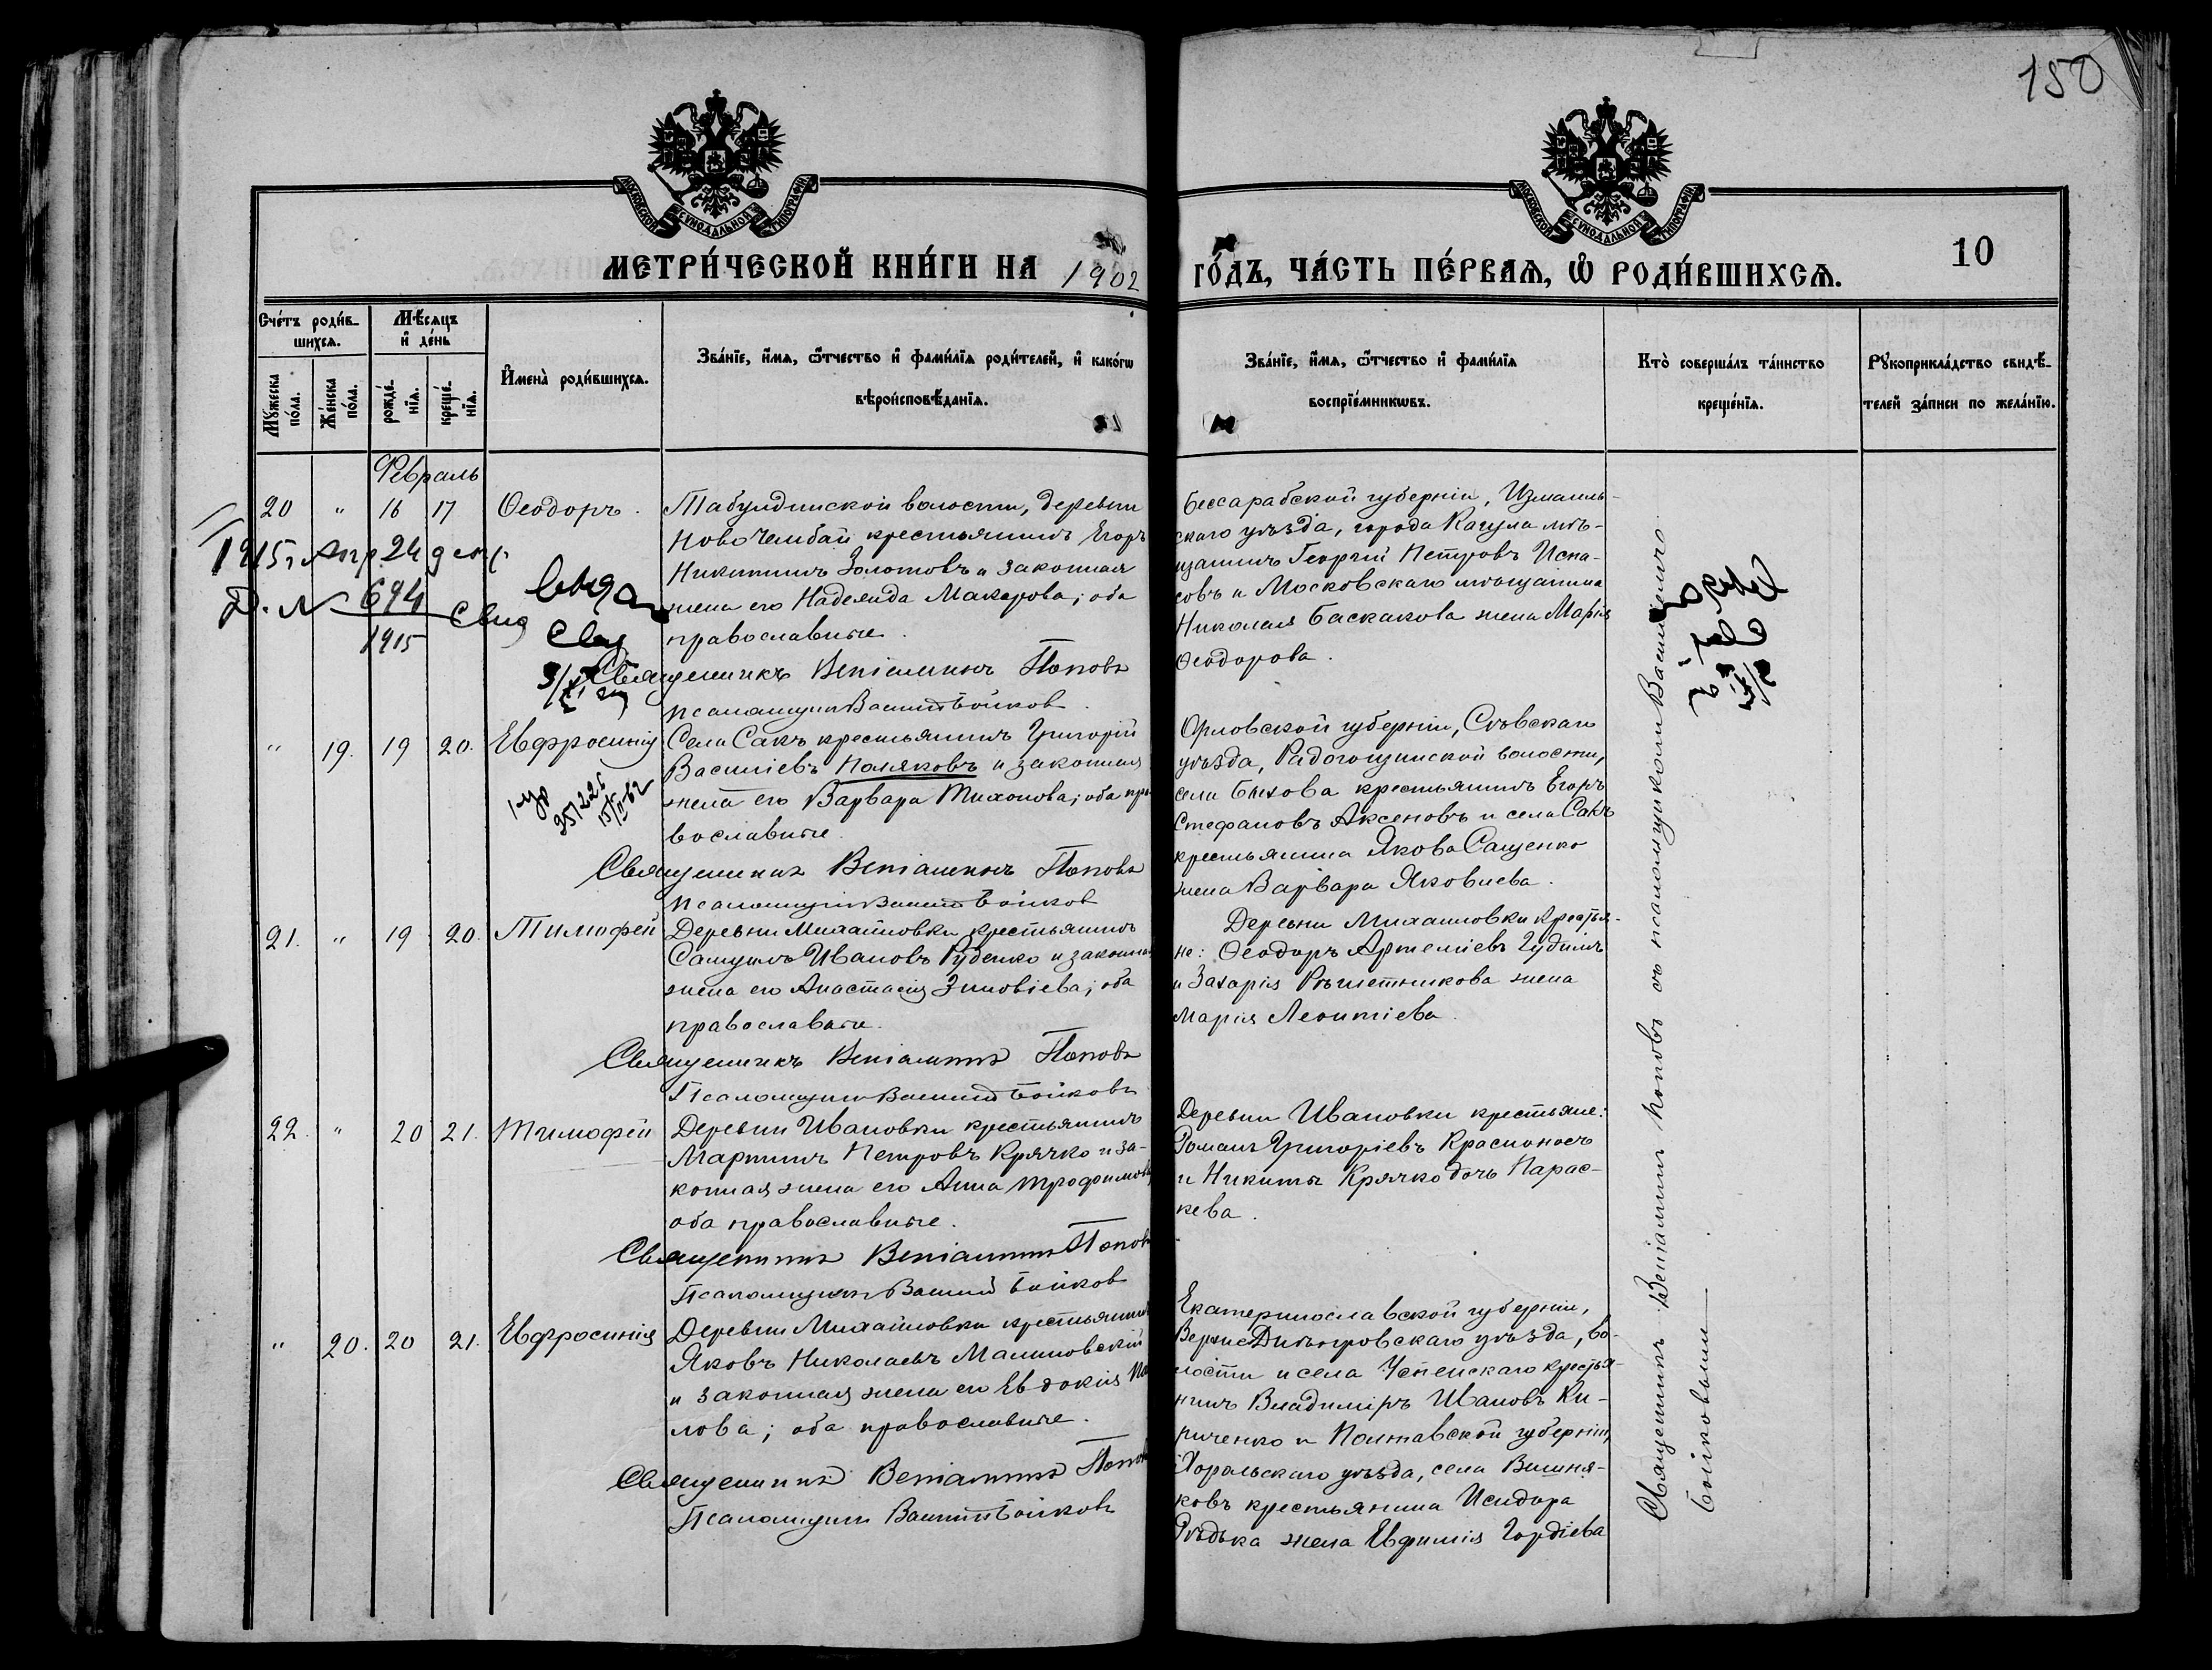 150
МОСКОВСКОЙ СѴНОДАЛЬНОЙ ТИПОГРАФІИ
МОСКОВСКОЙ СѴНОДАЛЬНОЙ ТИПОГРАФІИ
МЕТРИ́ЧЕСКОЙ КНИ́ГИ НА 1902 ГО́ДЪ, ЧА́СТЬ ПЕ́РВАѦ, Ѡ҆ РОДИ́ВШИХСѦ.
10
Сче́тъ роди́в-
шихсѧ.
Мꙋ́жеска по́ла.
Же́нска по́ла.
Мѣ́сѧцъ и҆ де́нь
рожде́-нїѧ.
креще́-нїѧ.
И҆мена̀ роди́вшихсѧ.
Зва́нїе, и҆́мѧ, ѻ҆́тчество и҆ фами́лїѧ роди́телей, и҆ како́гѡ
вѣроисповѣ́данїѧ.
Зва́нїе, и҆́мѧ, ѻ҆́тчество и҆ фами́лїѧ
воспрїе́мникѡвъ.
Кто̀ соверша́лъ та́инство
креще́нїѧ.
Рꙋкоприкла́дство свидѣ́-
телей за́писи по жела́нїю.
Февраль
20 " 16 17 Ѳеодоръ.
Табулдинской волости, деревни
Ново Чембай крестьянинъ Егоръ
Никитинъ Золотовъ и законная
жена его Надежда Макарова; оба
православные.
Священникъ Веніаминъ Поповъ
псаломщик Василій Бойков
Бессарабской губерніи, Измаиль-
скаго уѣзда, города Кагула мѣ-
щанинъ Георгій Петровъ Испа-
совъ и Московскаго мѣщанина
Николая Баскакова жена Марія
Ѳеодорова.
1915 г. Апр. 24 дня
Д. № 694
1915
Свид
выдан
Свид
" 19. 19 20. Евфросинія
Села Сакъ крестьянинъ Григорій
Василіевъ Поляковъ и законная
жена его Варвара Тихонова; оба пра-
вославные.
Священникъ Веніаминъ Поповъ
псаломщик Василій Бойков
Орловской губерніи, Сѣвскаго
уѣзда, Радогощинской волости,
села Быхова крестьянинъ Егоръ
Стефановъ Аксеновъ и села Сакъ
крестьянина Якова Сащенко
жена Варвара Яковлева.
21. " 19 20. Тимофей
Деревни Михайловки крестьянинъ
Самуилъ Ивановъ Руденко и законная
жена его Анастасія Зиновіева; оба
православные.
Священникъ Веніаминъ Поповъ
Псаломщик Василій Бойковъ
Деревни Михаиловки крестья-
не: Ѳеодоръ Артеміевъ Гудимъ
и Захарія Рѣшетникова жена
Марія Леонтіева
22. " 20 21. Тимофей
Деревни Ивановки крестьянинъ
Мартинъ Петровъ Крячко и за-
конная жена его Анна Трофимова
оба православные.
Священникъ Веніаминъ Поповъ
Псаломщикъ Василій Бойков
Деревни Ивановки крестьяне:
Романъ Григоріевъ Красноносъ
и Никиты Крячко дочь Парас-
кева.
" 20. 20 21. Евфросинія
Деревни Михайловки крестьянинъ
Яковъ Николаевъ Малиновскій
и законная жена его Евдокія Па
лова; оба православные.
Священникъ Веніаминъ Поповъ
Псаломщик Василій Бойковъ
Екатеринославской губерніи,
ВерхнеДнѣпровскаго уѣзда, во-
лости и села Успенскаго крестья-
нинъ Владиміръ Ивановъ Ки-
риченко и Полтавской губерніи,
Хорольскаго уѣзда, села Вишня-
ковъ крестьянина Исидора
Рѣдька жена Евфимія Гордіева
Священникъ Веніаминъ Поповъ съ псаломщикомъ Василіемъ
Бойковымъ